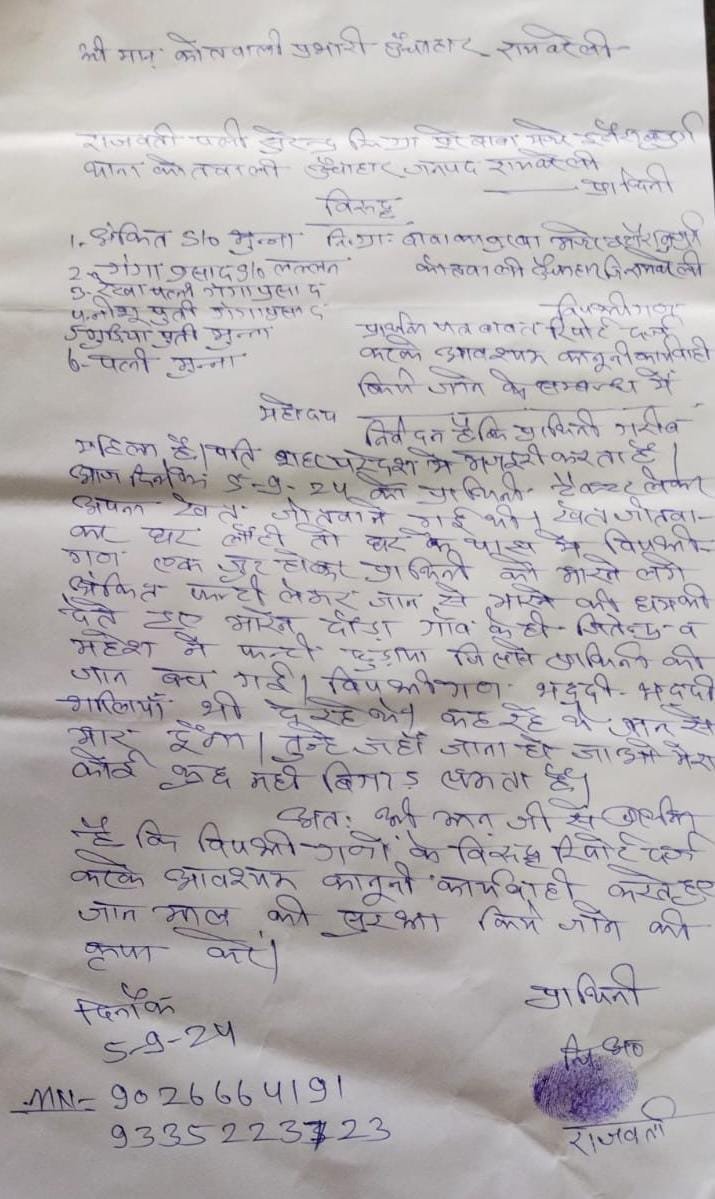 श्री मान् कोतवाली प्रभारी ऊँचाहार रायबरेली
राजवती पत्नी सुरेन्द्र नि०ग्रा० पूरे बाबा मजरे
थाना कोतवाली ऊँचाहार जनपद रायबरेली
प्रार्थिनी
विरुद्ध
1. अंकित S/o मुन्ना नि०ग्रा० बाबा का पुरवा मजरे
2. गंगा प्रसाद S/o लल्लन कोतवाली ऊँचाहार जि० रायबरेली
3. रेखा पत्नी गंगाप्रसाद
विपक्षीगण
4. पुत्री गंगाप्रसाद
5. गुडिया पुत्री मुन्ना प्रार्थना पत्र बावत रिपोर्ट दर्ज
6. पत्नी मुन्ना करके आवश्यक कानूनी कार्यवाही
किये जाने के सम्बन्ध में
महोदय
निवेदन है कि प्रार्थिनी गरीब
महिला है। पति बाहर परदेश में मजदूरी करता है।
आज दिनांक 5-9-24 को प्रार्थिनी ट्रैक्टर लेकर
अपना खेत जोतवाने गई थी। खेत जोतवा-
कर घर लौटी तो घर के पास में विपक्षी-
गण एक जुट होकर प्रार्थिनी को मारने लगे
अंकित फरसी लेकर जान से मारने की धमकी
देते हुए मारने दौड़ा गाँव के ही जितेन्द्र व
महेश ने छुड़ाया जिससे प्रार्थिनी की
जान बच गई। विपक्षीगण भद्दी-भद्दी
गालियाँ भी दे रहे थे। कह रहे थे जान से
मार दूँगा। तुम्हे जहाँ जाना हो जाओ मेरा
कोई कुछ नही बिगाड़ सकता है।
अतः श्री मान् जी से प्रार्थना
है कि विपक्षी-गणों के विरुद्ध रिपोर्ट दर्ज
करके आवश्यक कानूनी कार्यवाही करते हुए
जान माल की सुरक्षा किये जाने की
कृपा करें।
दिनाँक
प्रार्थिनी
5-9-24
नि० अं०
MN- 9026664191
9335223723
राजवती